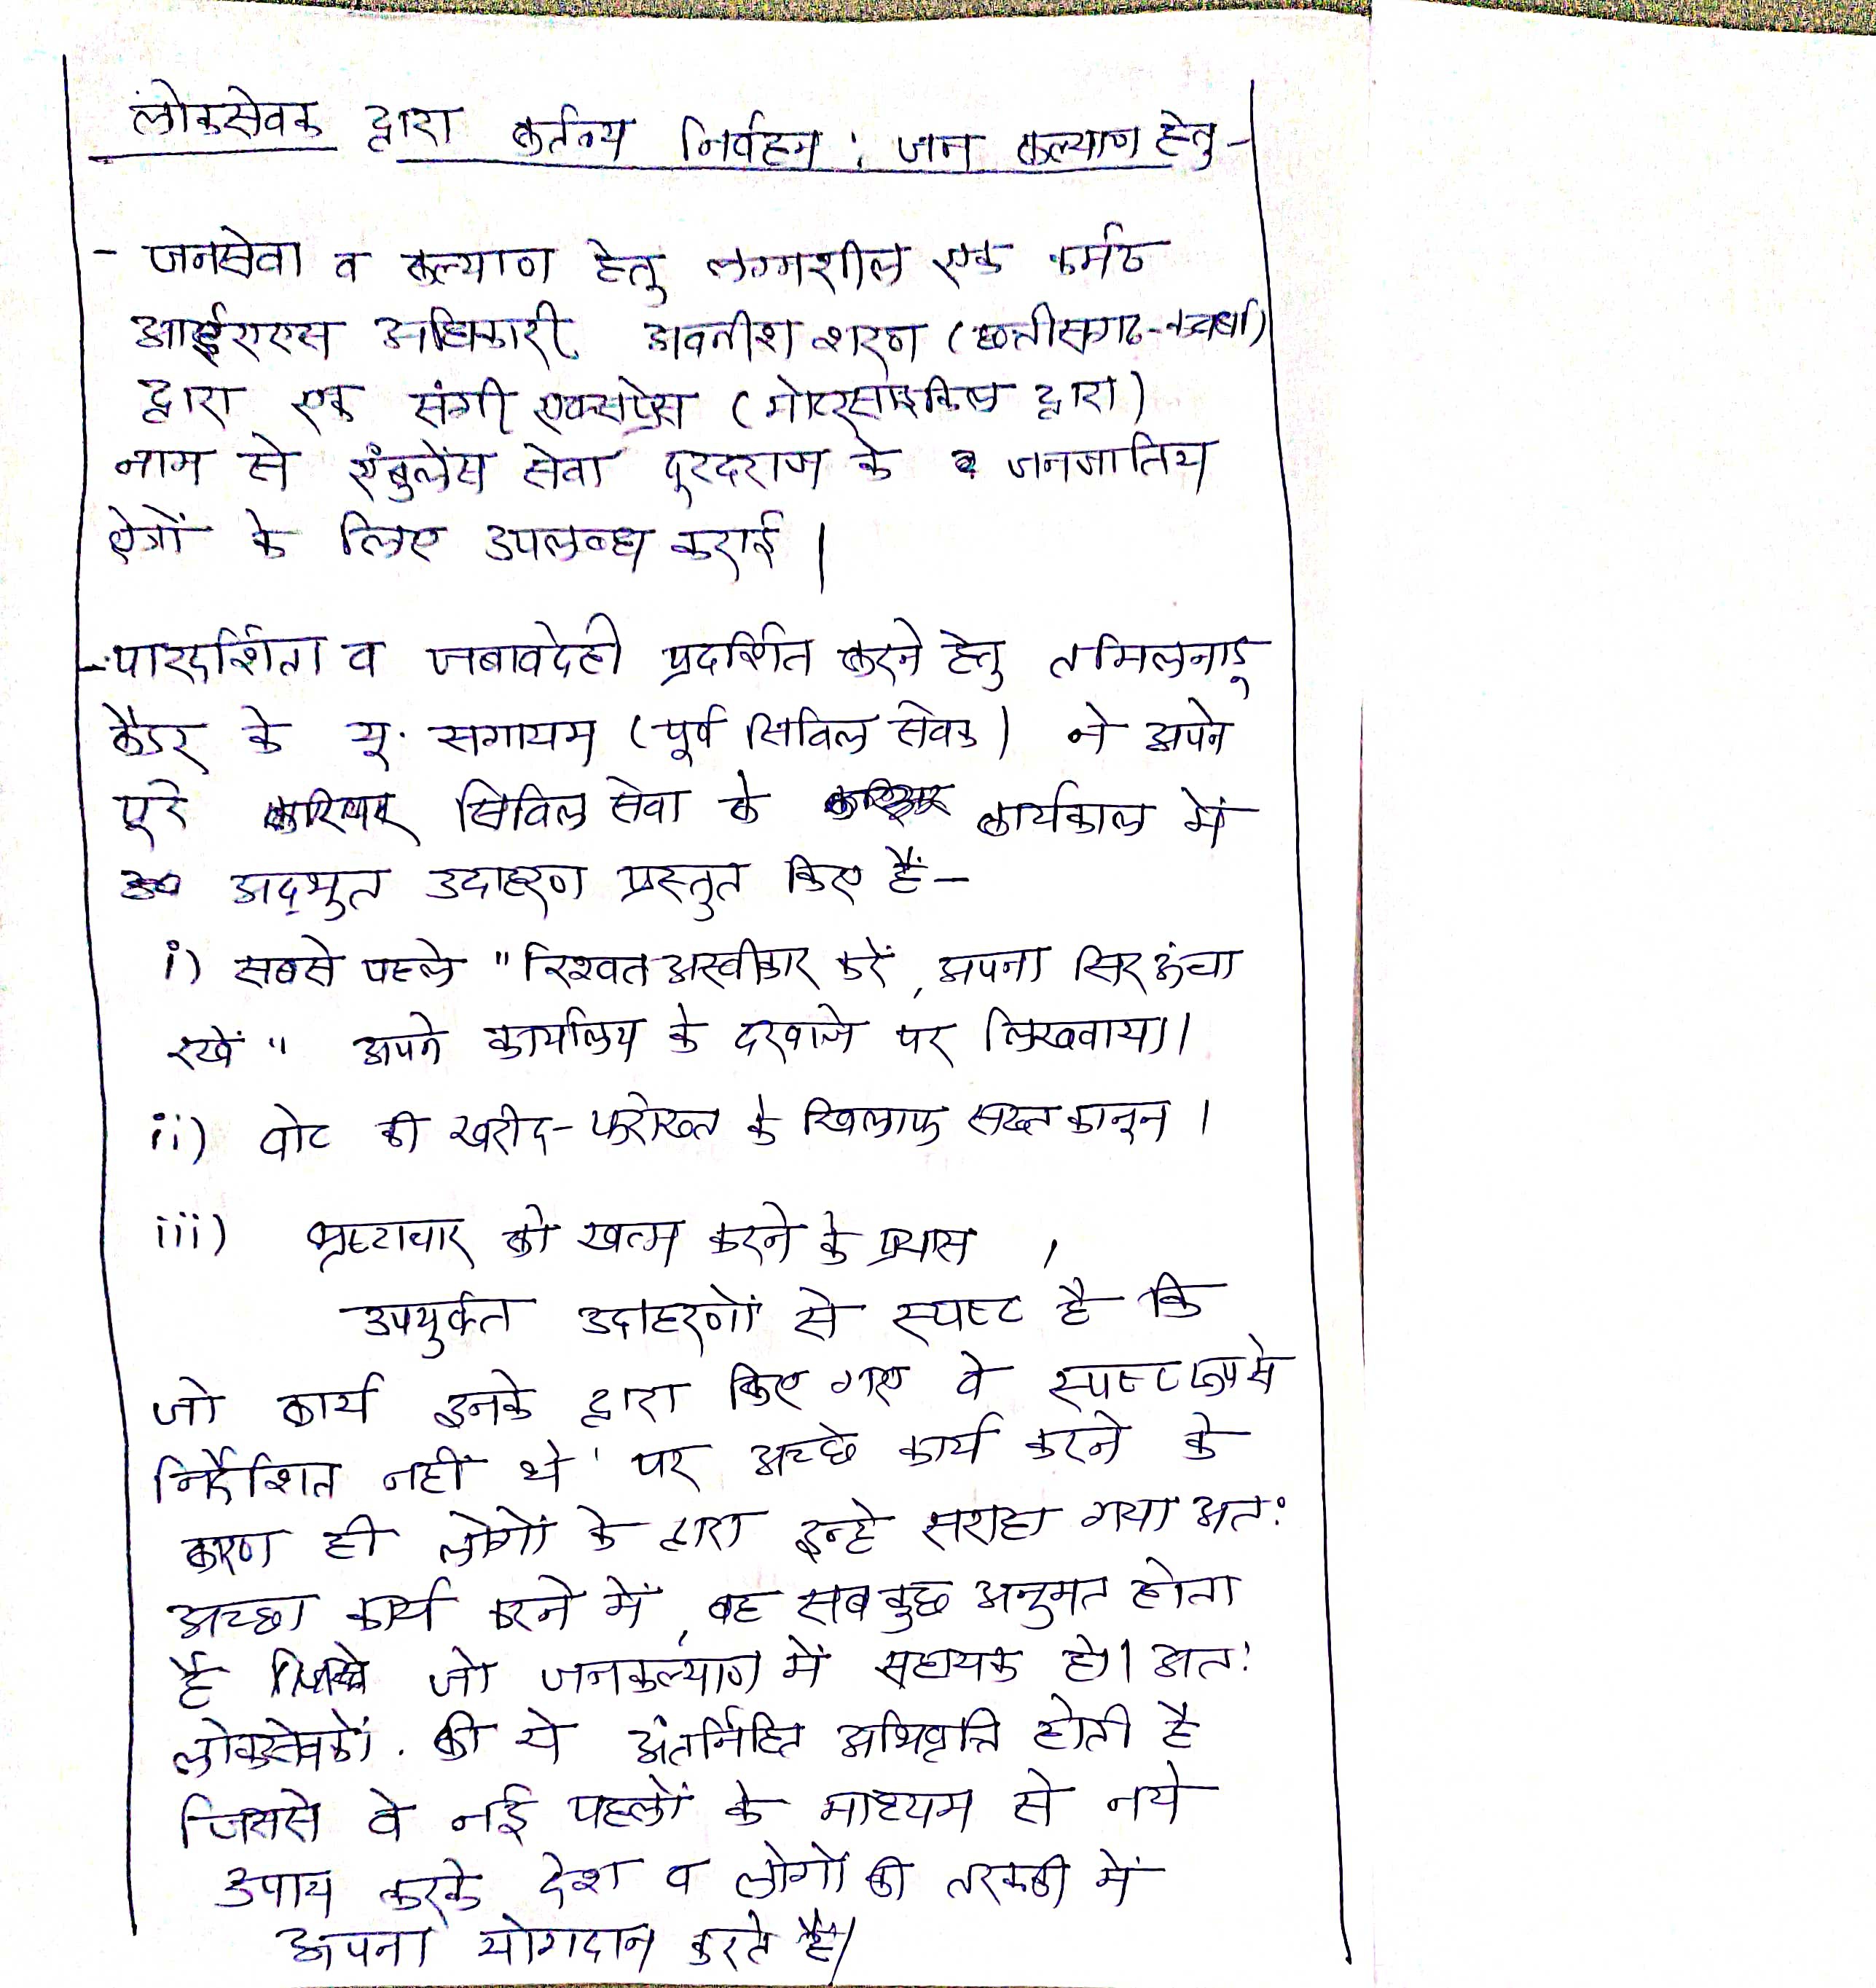 लोकसेवक द्वारा कर्तव्य निर्वहन : जन कल्याण हेतु -
- जनसेवा व कल्याण हेतु लग्नशील एक कर्मठ
आईएएस अधिकारी अवनीश शरण (छत्तीसगढ-कवर्धा)
द्वारा एक संगी एक्सप्रेस (मोटरसाइकिल द्वारा)
नाम से एंबुलेंस सेवा दूरदराज के जनजातिय
क्षेत्रों के लिए उपलब्ध कराई।
- पारदर्शिता व जबावदेही प्रदर्शित करने हेतु तमिलनाडू
कैडर के यू. सगायम (पूर्व सिविल सेवक) ने अपने
पूरे सिविल सेवा के कार्यकाल में
अद्भुत उदाहरण प्रस्तुत किए हैं-
i) सबसे पहले "रिश्वत अस्वीकार करें, अपना सिर ऊंचा
रखें" अपने कार्यालय के दरवाजे पर लिखवाया।
ii) वोट की खरीद-फरोख्त के खिलाफ सख्त कानून।
iii) भ्रष्टाचार को खत्म करने के प्रयास।
उपर्युक्त उदाहरणों से स्पष्ट है कि
जो कार्य इनके द्वारा किए गए वे स्पष्ट रूप से
निर्देशित नहीं थे' पर अच्छे कार्य करने के
कारण ही लोगों के द्वारा इन्हे सराहा गया अत:
अच्छा कार्य करने में, वह सब कुछ अनुमत होता
है जो जनकल्याण में सहायक हो। अत:
लोकसेवकों. की ये अंतर्निहित अभिवृत्ति होती है
जिससे वे नई पहलों के माध्यम से नये
उपाय करके देश व लोगों की तरक्की में
अपना योगदान करते हैं।